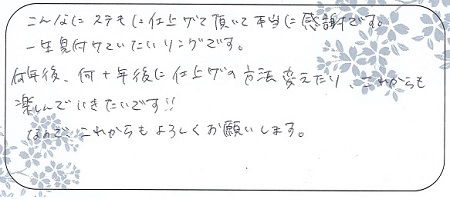 こんなにステキに仕上げて頂いて本当に感謝です。
一生身付けていたいリングです。
何年後、何十年後に仕上げの方法変えたり、これからも
楽しんでいきたいです!!
なので、これからもよろしくお願いします。